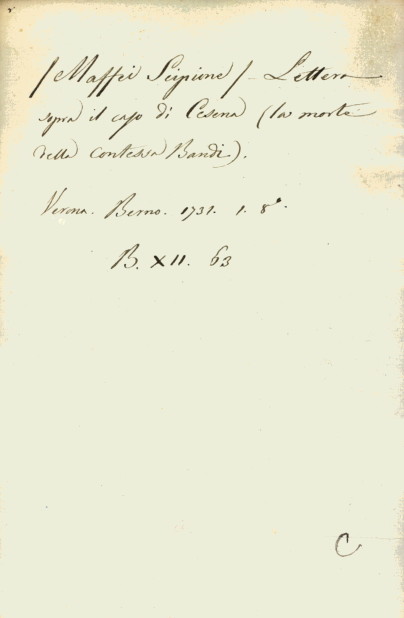 [Maffei Scipione] - Lettera
sopra il caso di Cesena (la morte
della contessa Bandi).
Verona. Berno. 1731. 1. 8°.
B. XII. 63
C